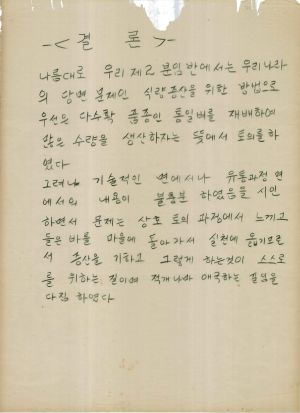 -< 결 론 >-
나름대로 우리 제2 분임반에서는 우리나라
의 당면 문제인 식량증산을 위한 방법으로
우선은 다수확 품종인 통일벼를 재배하여
많은 수량을 생산하자는 뜻에서 토의를 하
였다
그러나 기술적인 면에서나 유통과정 면
에서의 내용이 불충분 하였음을 시인
하면서 문제는 상호 토의 과정에서 느끼고
들은바를 마을에 돌아가서 실천에 옮기므로
서 증산을 기하고 그렇게 하는것이 스스로
를 위하는 길이며 적게나마 애국하는 길임을
다짐 하였다